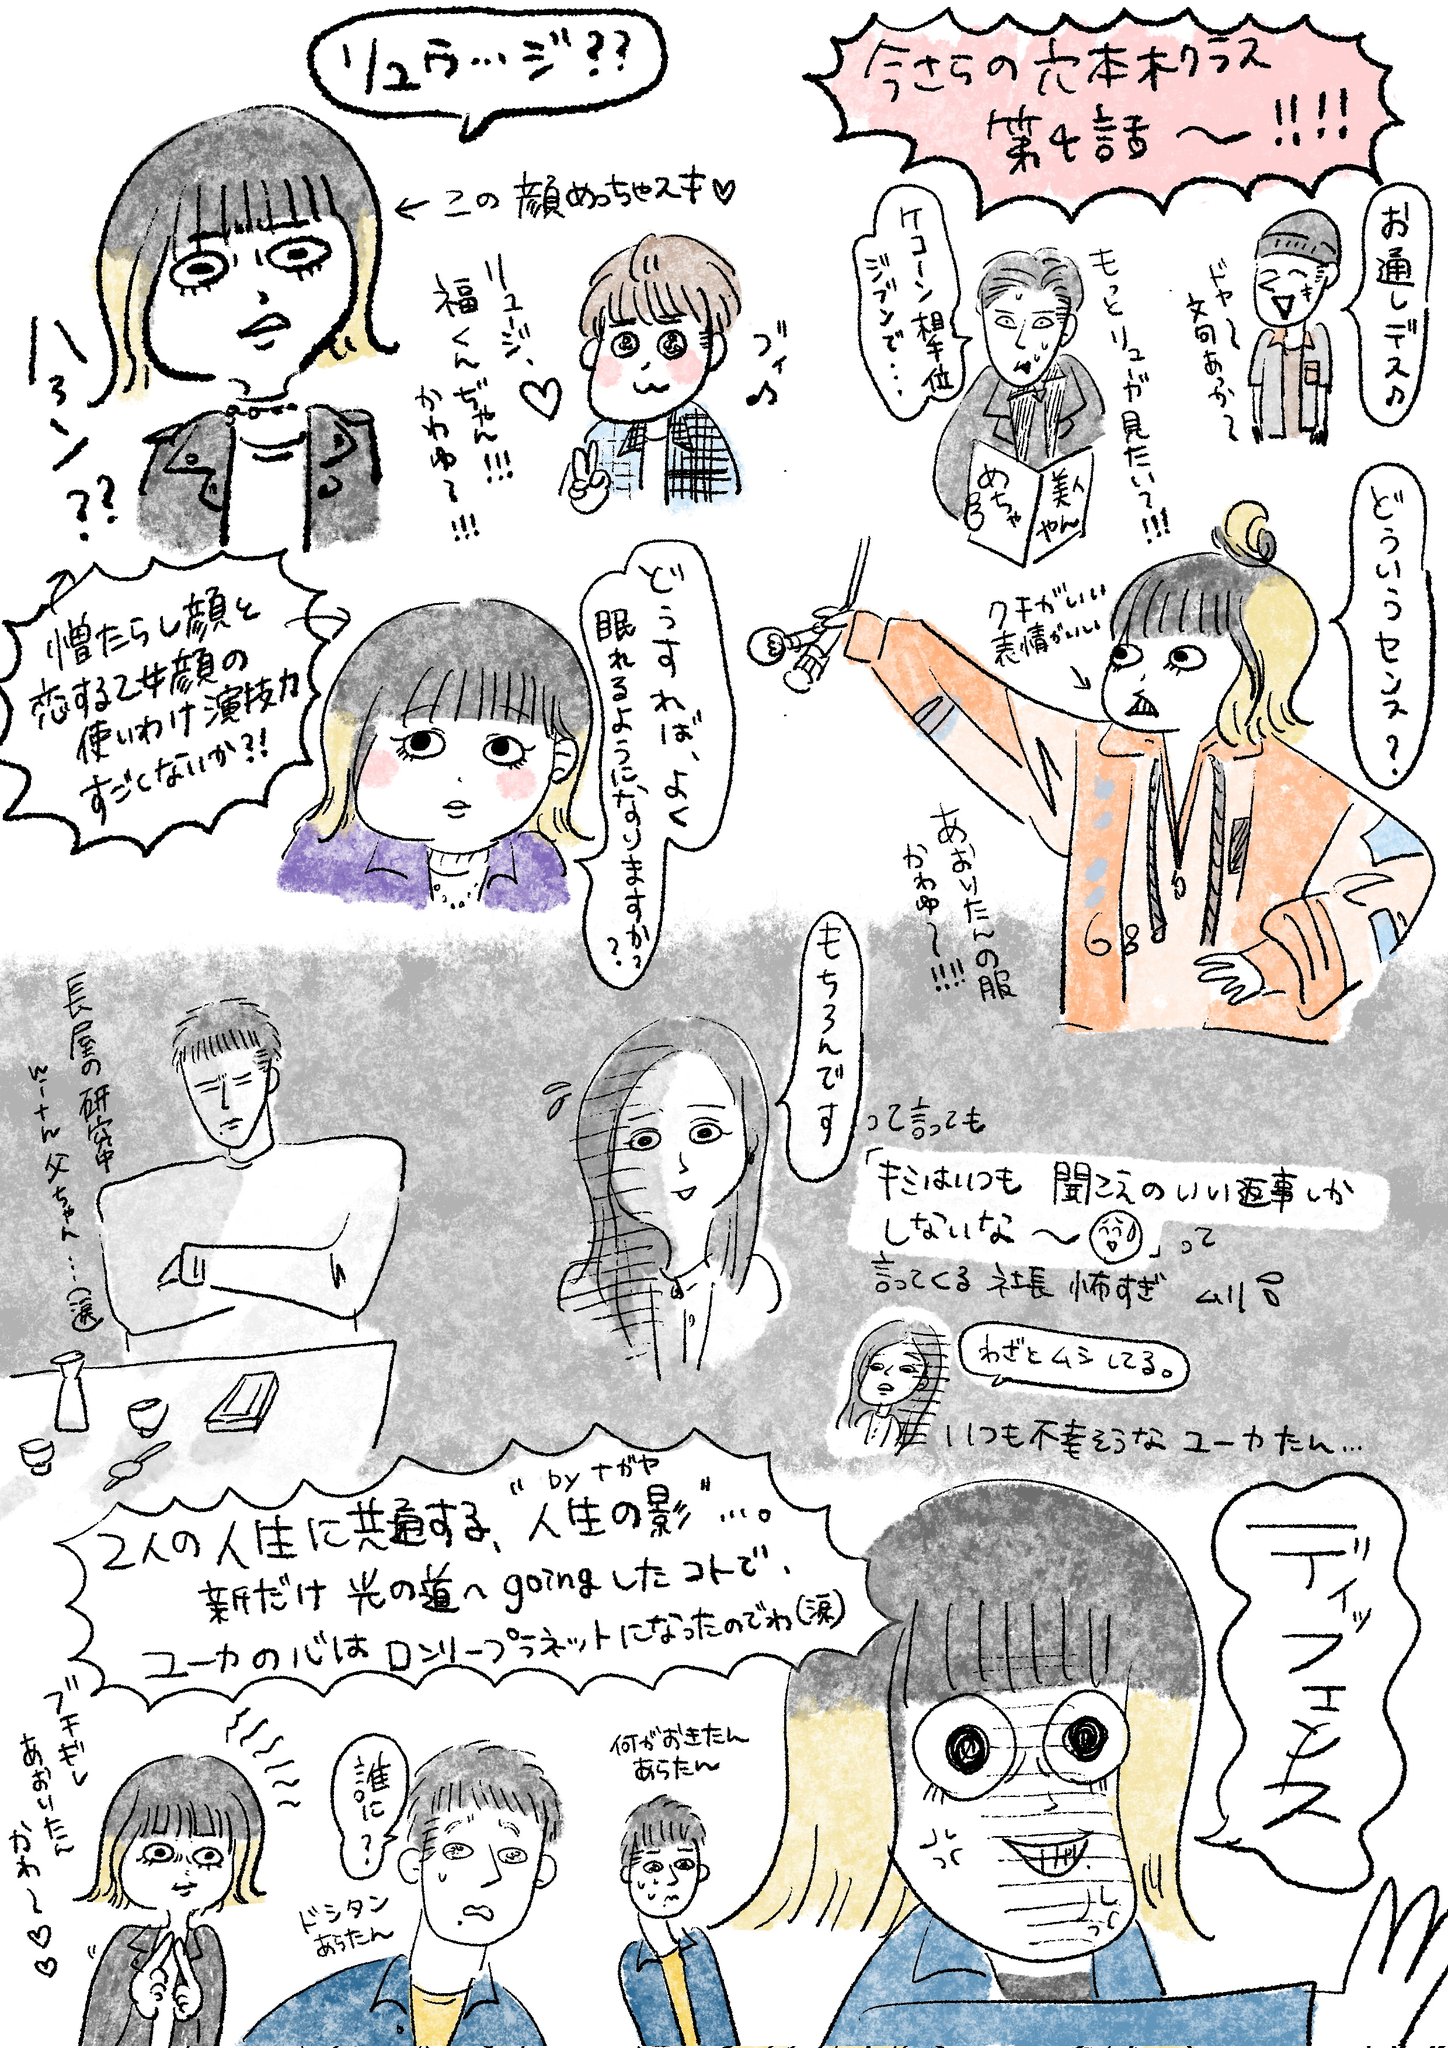 今さらの六本木クラス
第4話〜!!!!
お通しデス♪
ドヤ〜
文句あっか〜
もっとリュウガ見たいっ!!!
ケコーン相手位
ジブンで・・・
めちゃ
美人
やん
どういうセンス?
クチがいい
表情がいい
あおいたんの服
かわゆ〜!!!!
リュウ…ジ??
←この顔めっちゃスキ♡
リュージ、
福くんぢゃん!!!
かわゆ〜!!!
ブイ♪
ハァン??
憎たらし顔と
恋する乙女顔の
使いわけ演技力
すごくないか?!
どうすれば、よく
眠れるように、なりますか??
もちろんです
って言っても
「キミはいつも 聞こえのいい返事しか
しないな〜」って
言ってくる 社長 怖すぎ ムリ
わざとムシしてる。
いつも不幸そうな ユーカたん…
長屋の研究中
父ちゃん…(涙)
by ナガヤ
2人の人生に共通する、"人生の影"…。
新だけ 光の道へgoingしたコトで、
ユーカの心は ロンリープラネットになったのでわ(涙)
ディッフェンス
何がおきたん
あらたん
誰に?
ドシタン
あらたん
ブキギレ
あおいたん
かわ〜♡♡